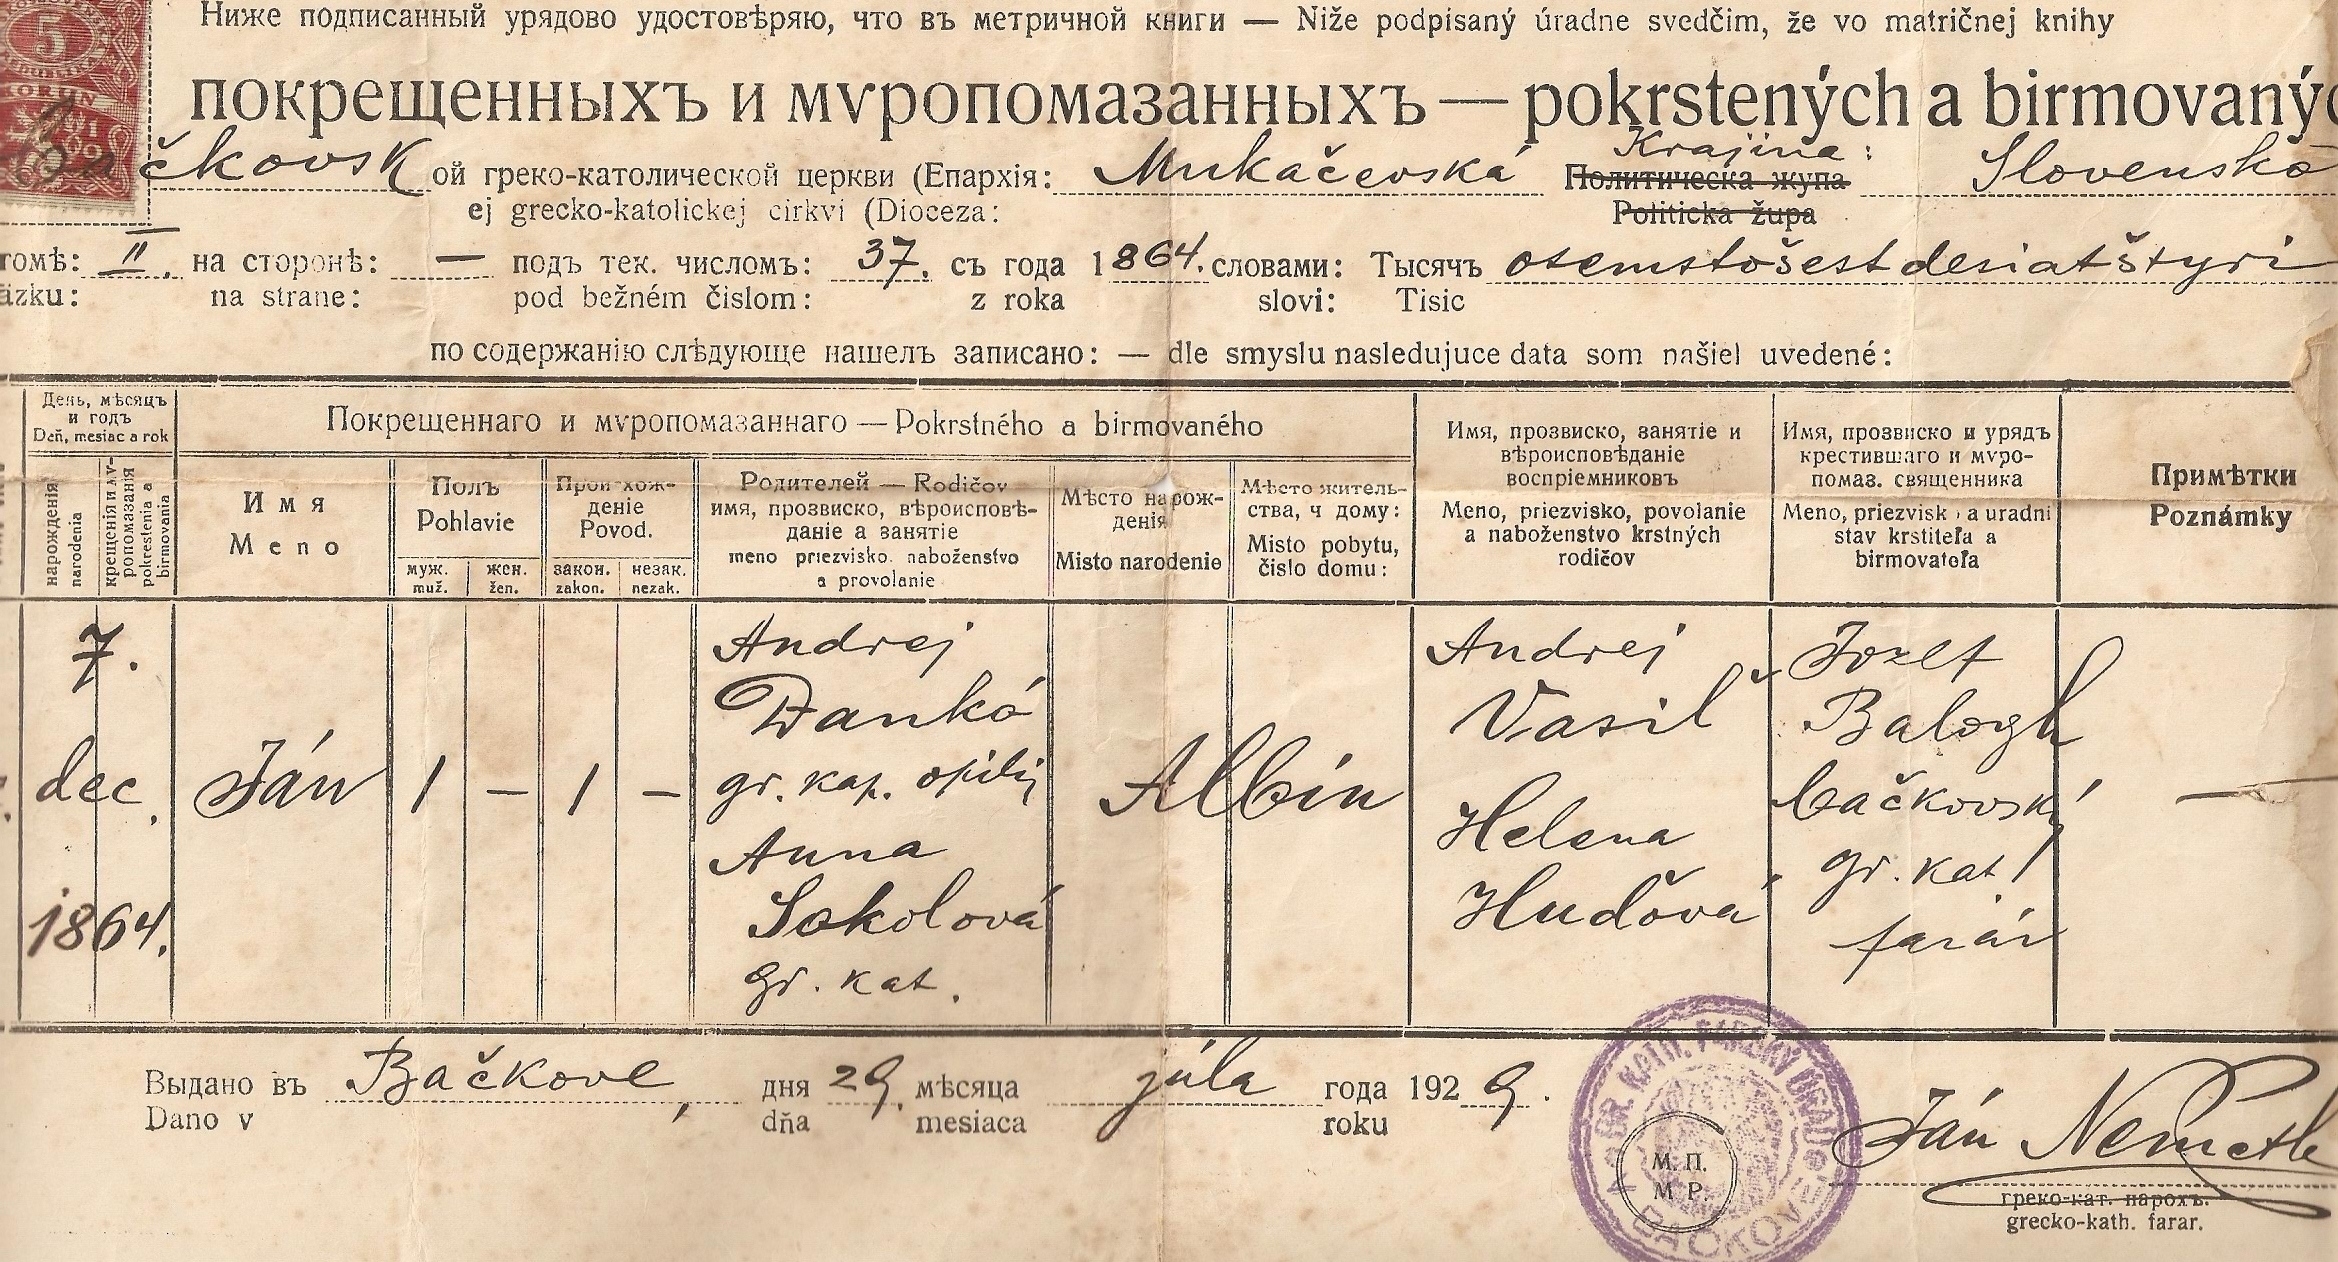 Ниже подписанный урядово удостовѣряю, что въ метричной книги — Niže podpísaný úradne svedčim, že vo matričnej knihy
5
покрещенныхъ и мѵропомазанныхъ — pokrstených a birmovanýc
Bačkovsk ой греко-католической церкви (Епархія: Mukačevská Krajina: Slovensko
Политическа жупа
ej grecko-katolickej cirkvi (Dioceza:
Politicka župa
томѣ: II. на сторонѣ: — подъ тек. числомъ: 37. съ года 1864. словами: Тысячъ osemstošesťdesiatštyri
äzku: na strane: pod bežném čislom: z roka slovi: Tisic
по содержанію слѣдующе нашелъ записано: — dle smyslu nasledujuce data som našiel uvedené:
День, мѣсяцъ
и годъ
Deň, mesiac a rok
нарожденія
narodenia
крещенія и мѵ-
ропомазанія
pokrestenia a
birmovania
Покрещеннаго и мѵропомазаннаго — Pokrstného a birmovaného
Имя
Meno
Полъ
Pohlavie
муж.
muž.
жен.
žen.
Происхож-
деніе
Povod.
закон.
zakon.
незак.
nezak.
Родителей — Rodičov
имя, прозвиско, вѣроисповѣ-
даніе а занятіе
meno priezvisko. naboženstvo
a provolanie
Мѣсто нарож-
денія
Misto narodenie
Мѣсто житель-
ства, ч дому:
Misto pobytu,
čislo domu:
Имя, прозвиско, занятіе и
вѣроисповѣданіе
воспріемниковъ
Meno, priezvisko, povolanie
a naboženstvo krstných
rodičov
Имя, прозвиско и урядъ
крестившаго и мѵро-
помаз. священника
Meno, priezvisk a uradni
stav krstiteľa a
birmovateľa
Примѣтки
Poznámky
7.
dec.
1864.
Ján
1
—
1
—
Andrej
Dankó
gr. kap.
Anna
Sokolová
gr. kat.
Albín
Andrej
Vasiľ
Helena
Huďová
Jozef
Balogh
bačkovský
gr. kat.
farár
—
Выдано въ Bačkove, дня 29. мѣсяца júla года 1929.
Dano v dňa mesiaca roku
GR. KATH. FARSKÝ URAD
BAČKOV
М. П.
M P.
Ján Nemeth
греко-кат. парохъ.
grecko-kath. farar.